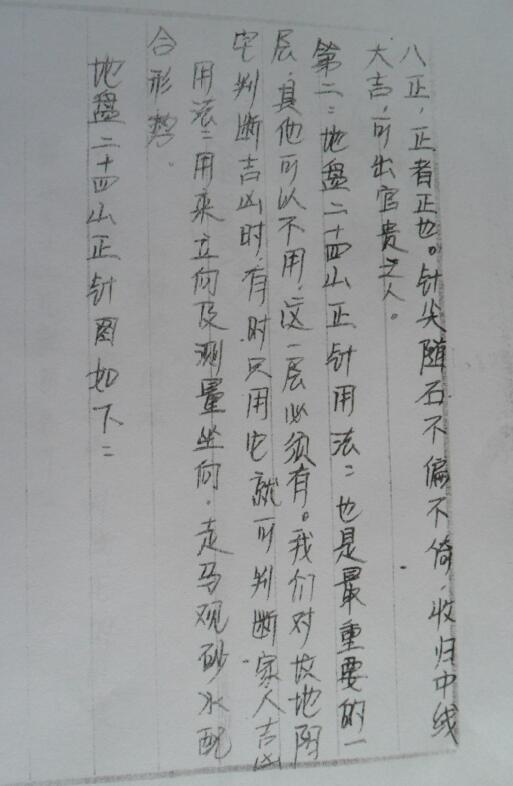 八正，正者正也。针尖随石不偏不倚，收归中线
大吉，可出官贵之人。
第二：地盘二十四山正针用法：也是最重要的一
层，其他可以不用，这一层必须有。我们对坟地阴
宅判断吉凶时，有时只用它就可判断家人吉凶
用法：用来立向及测量坐向，走马观砂水配
合形势。
地盘二十四山正针图如下：